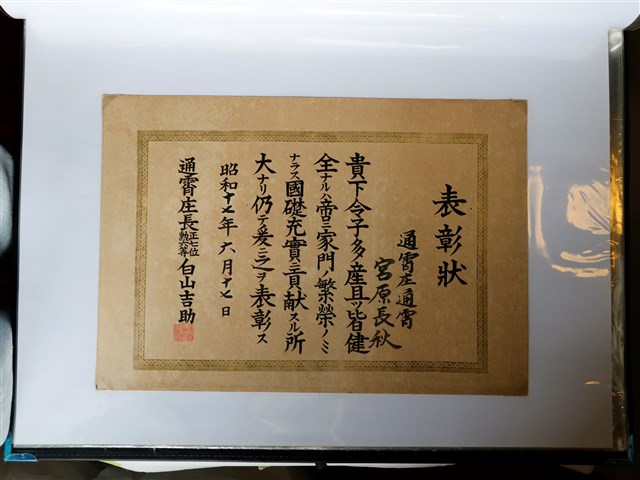 表彰狀
通霄庄通霄
宮原長秋
貴下令子多産且ツ皆健
全ナルハ啻ニ家門ノ繁榮ノミ
ナラス國礎充實ニ貢献スル所
大ナリ仍テ爰ニ之ヲ表彰ス
昭和十七年六月十七日
通霄庄長正七位勲六等白山吉助